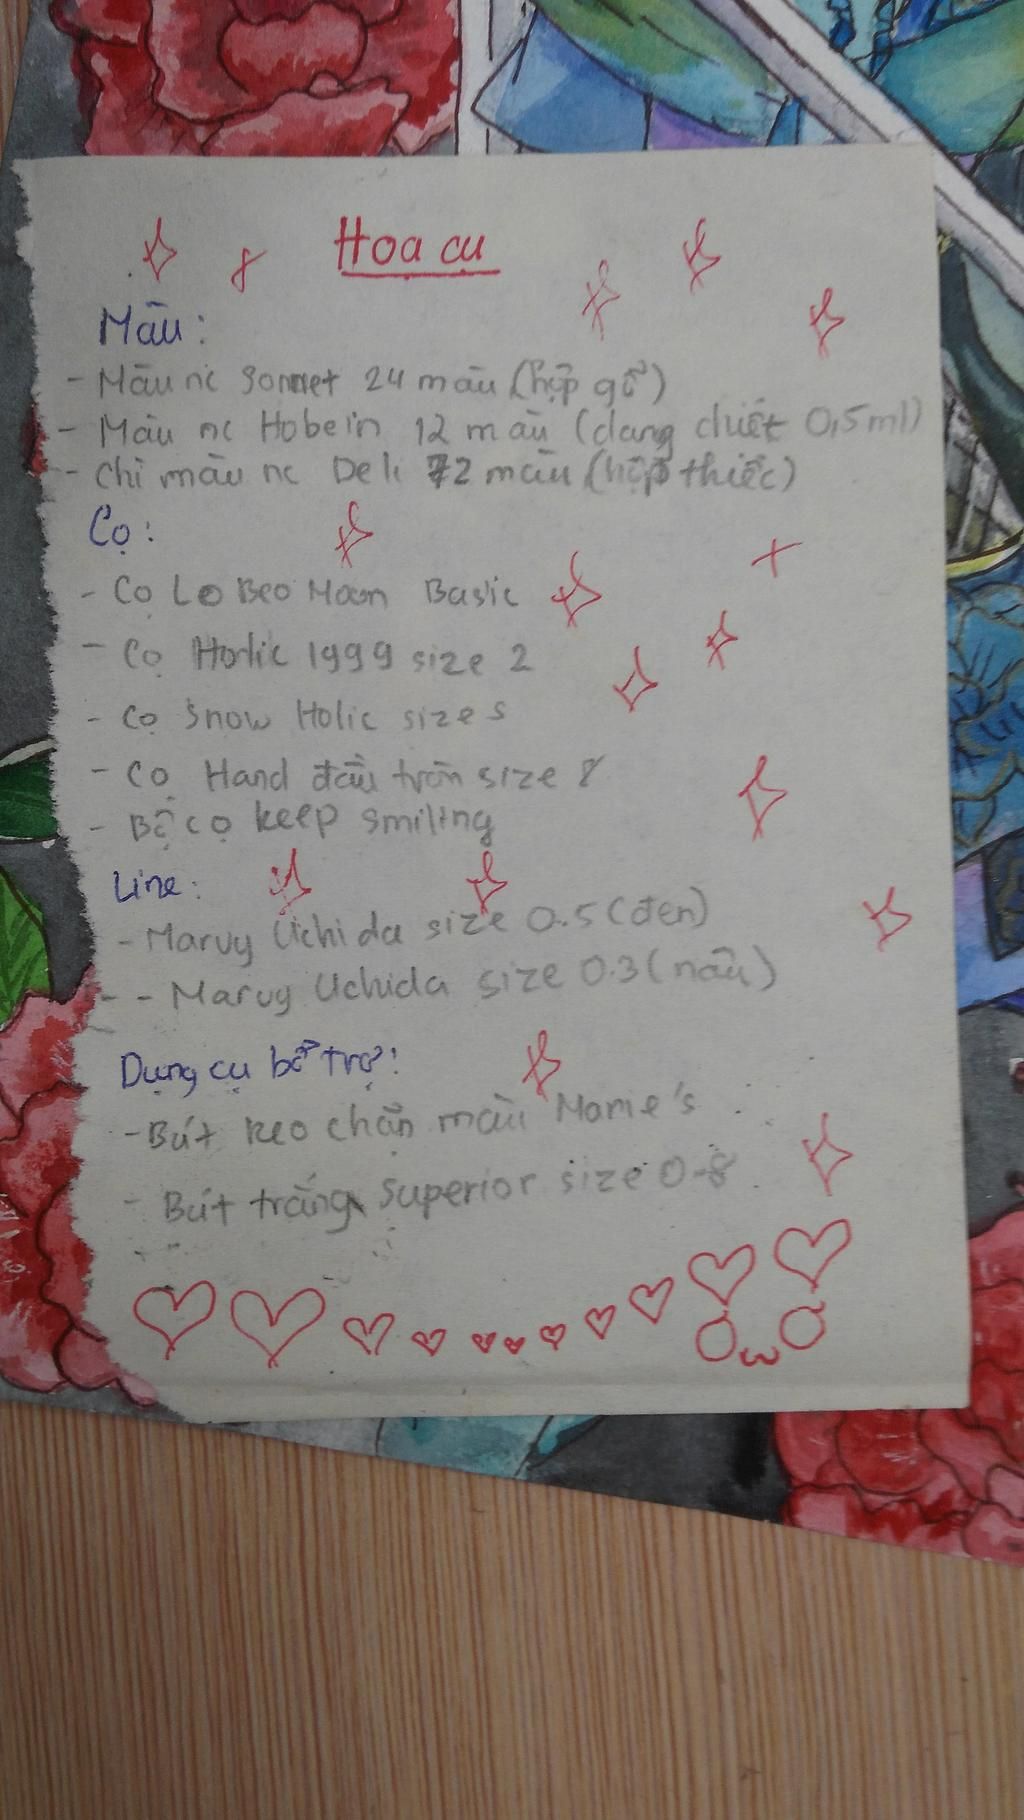 Hoạ cụ
Màu:
- Màu nc Sonnet 24 màu (hộp gỗ)
- Màu nc Hobein 12 màu (dạng chiết 0,5ml)
- Chì màu nc Deli 72 màu (hộp thiếc)
Cọ:
- Cọ Lo Beo Moon Basic
- Cọ Horlic 1999 size 2
- Cọ Snow Holic size S
- Cọ Hand đầu tròn size 8
- Bộ cọ keep smiling
Line:
- Marvy Uchida size 0.5 (đen)
- - Marvy Uchida size 0.3 (nâu)
Dụng cụ bổ trợ:
- Bút keo chắn màu Marie's
- Bút trắng Superior size 0-8
OwO